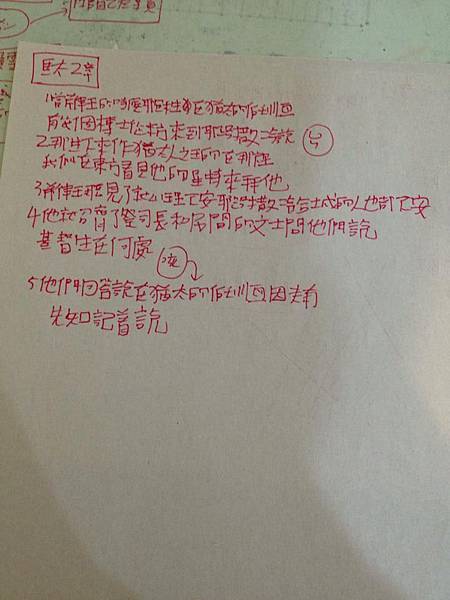 馬太2章
1當希律王的時候耶穌生在猶太的伯利恆
有幾個博士從東方來到耶路撒冷說
2那生下來作猶太人之王的在那裡
我們在東方看見他的星特來拜他
3希律王聽見了就心裡不安耶路撒冷合城的人也都不安
4他就召齊了祭司長和民間的文士問他們說
基督生在何處
5他們回答說在猶太的伯利恆因為有
先知記著說